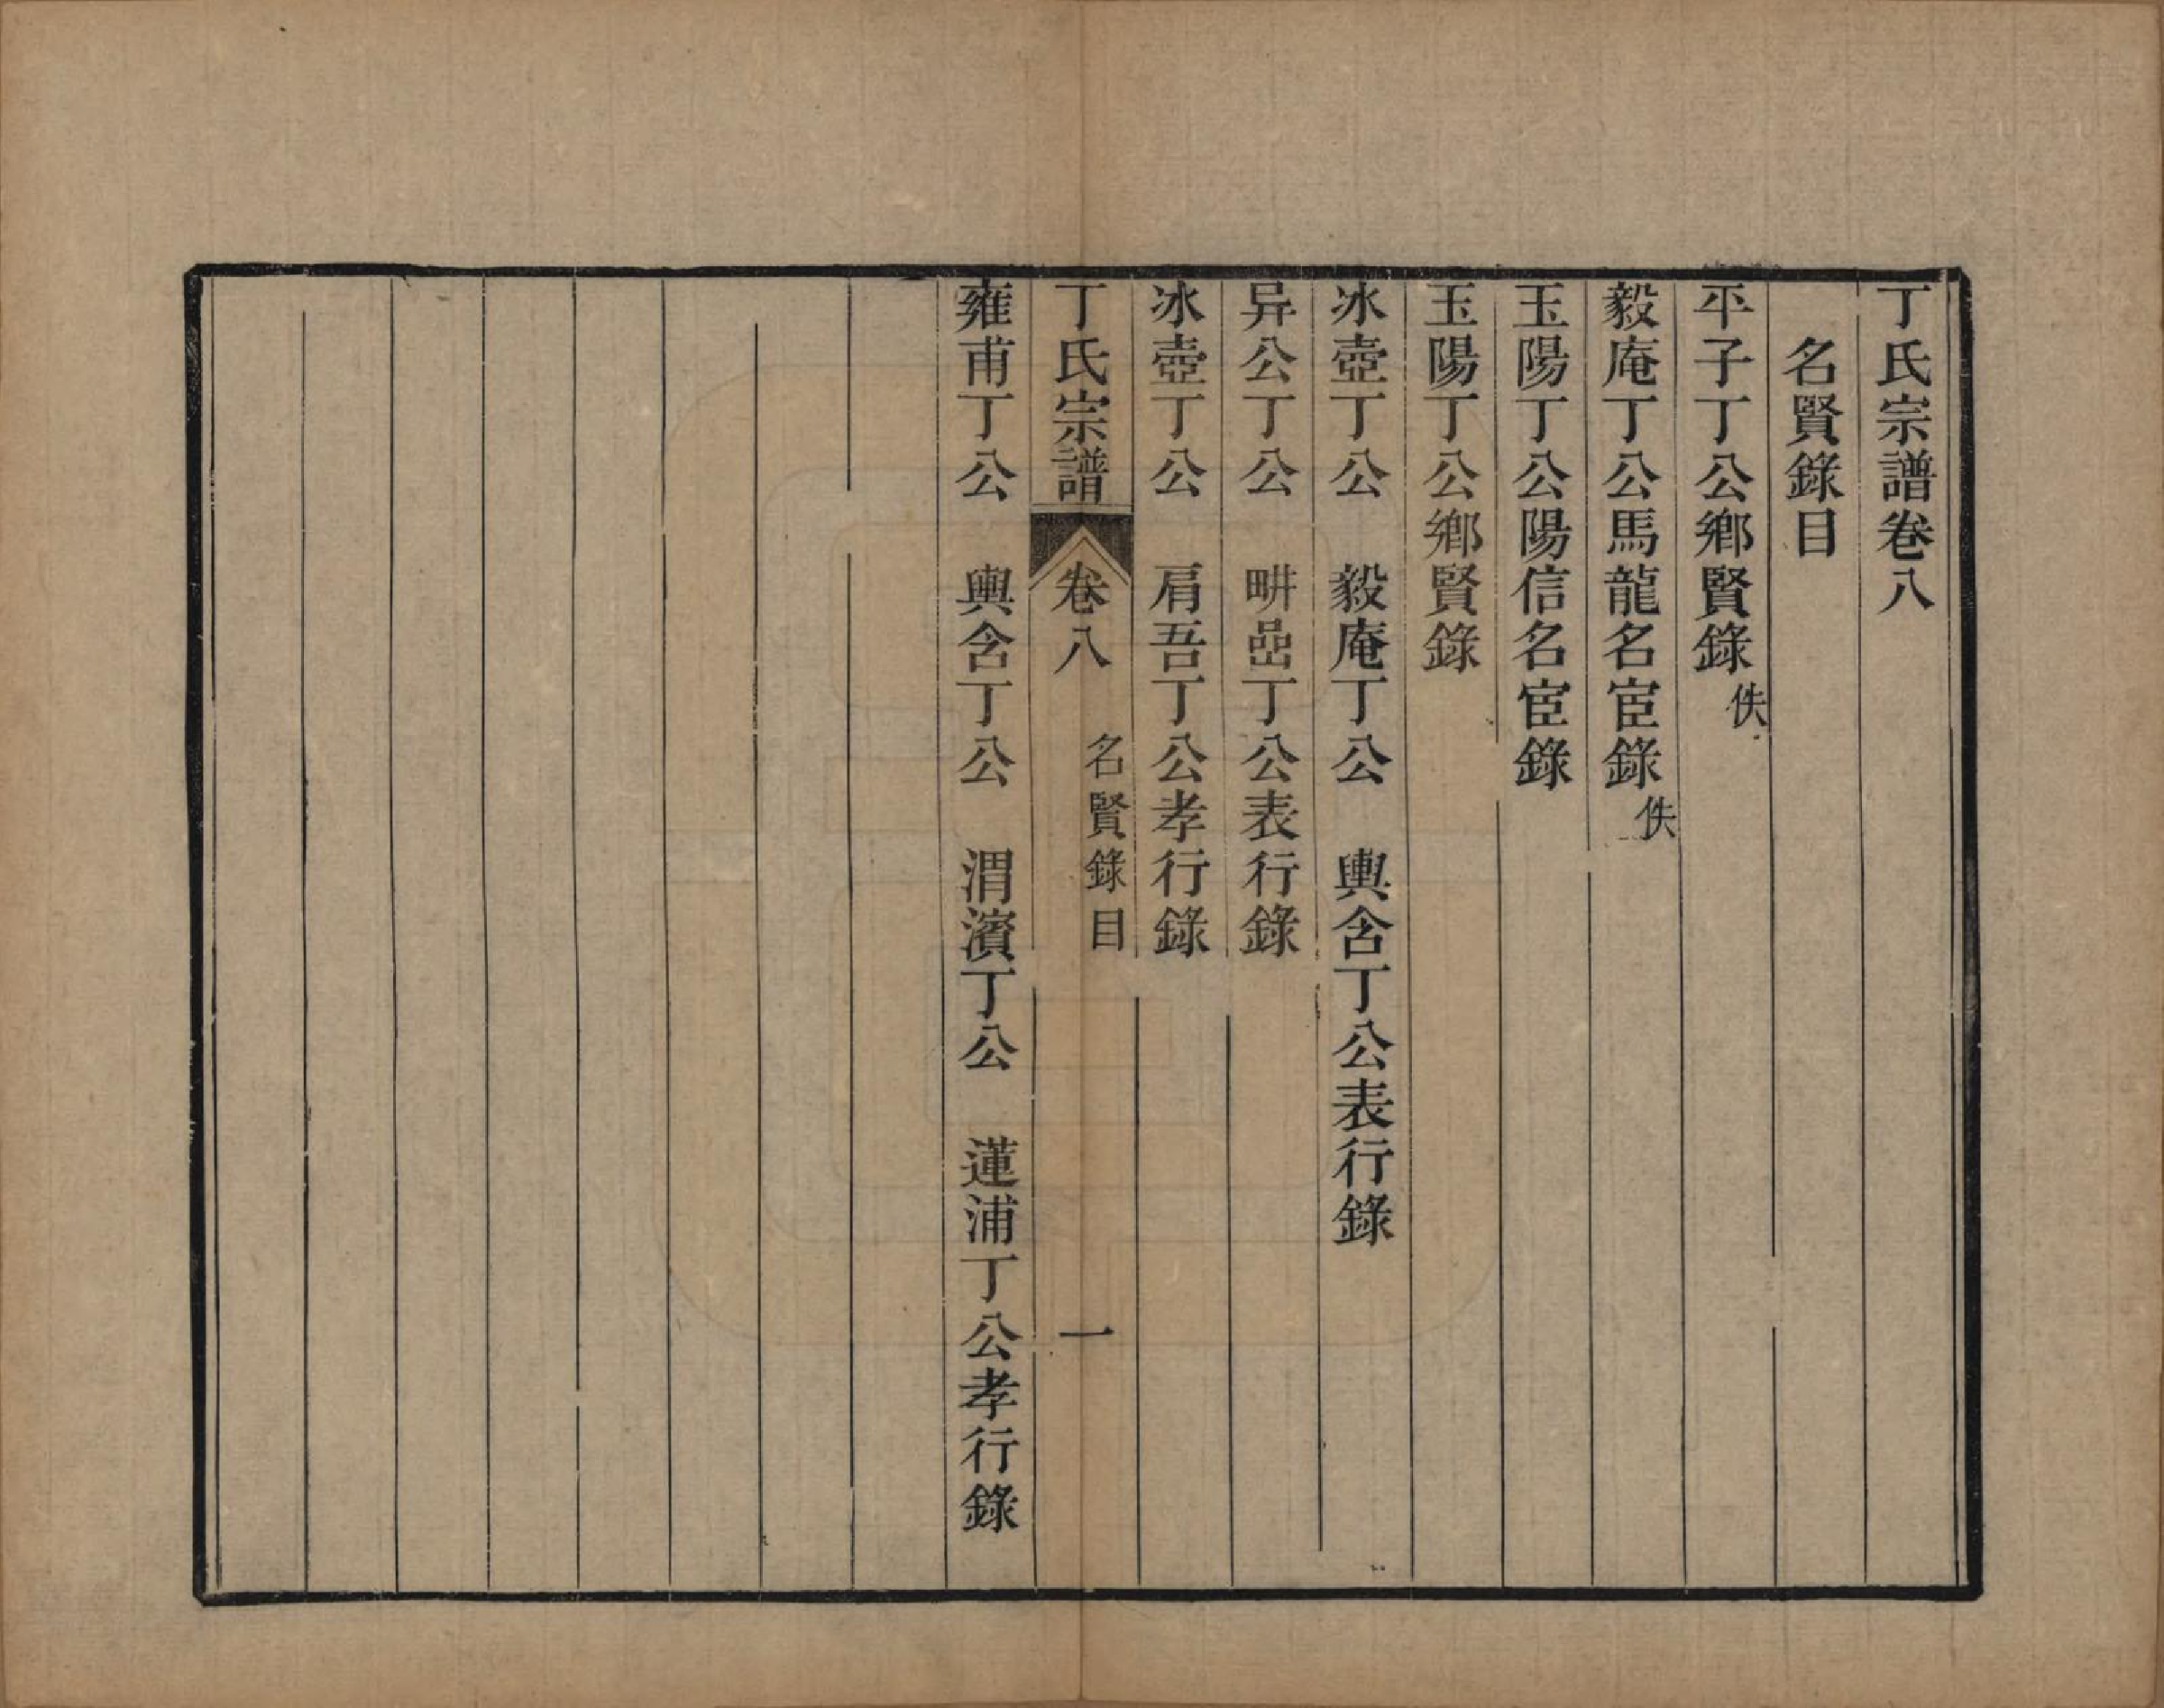 丁氏宗譜卷八
名賢錄目
平子丁公鄉賢錄佚
毅庵丁公馬龍名宦錄佚
玉陽丁公陽信名宦錄
玉陽丁公鄉賢錄
冰壺丁公　毅庵丁公　輿含丁公表行錄
异公丁公　畊嵒丁公表行錄
冰壺丁公　肩吾丁公孝行錄
丁氏宗譜　卷八　名賢錄目　一
雍甫丁公　輿含丁公　渭濱丁公　蓮浦丁公孝行錄